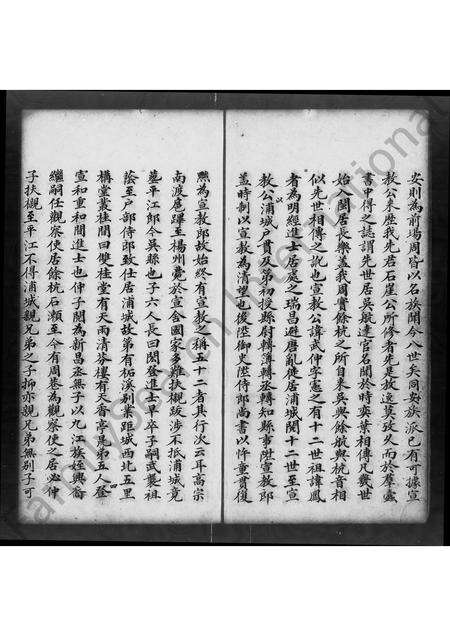 安則為前場周皆以名族聞今八世矣同安族派已有可據宣
教公來歷我先君石崖公所修者先是故逸莫攷久而於羣盡
書中得之誌謂先世居吳航達官名聞於時奕葉相傳凡幾世
始入閩居長樂蓋我周實餘杭之所自來吳與餘航與杭音相
似先世相傳之訛也宣教公諱武仲字憲之有十二世祖諱鳳
者為明經進士居處之瑞昌避唐亂徙居浦城閱十二世至宣
教公浦城戶貫以弟初授縣尉轉簿轉丞轉知縣事陞宣教郎
蓋時制以宣教為清望也後陞御史陞侍郎尚書以忤童貫復
黜為宣教郎故始終有宣教之稱五十二者具行次云耳高宗
南渡扈蹕至楊州薨於宣舍國家多難扶櫬跋涉不抵浦城竟
墓平江郎今吳縣也子六人長曰閎登進士早卒子嗣武襲祖
蔭至戶部侍郎致仕居浦城故第有柘溪別業距城西北五里
構堂叢桂間曰雙桂堂有天雨清芬樓有天香亭尾弟五人登
宣和重和間進士也仲子閱為新昌丞無子以九江族姪興裔
繼嗣任觀察使居餘杭石瀨至今有周巷為觀察使之居必仲
子扶櫬至平江不得浦城親兄弟之子抑亦親兄弟無別子可
FamilySearch International